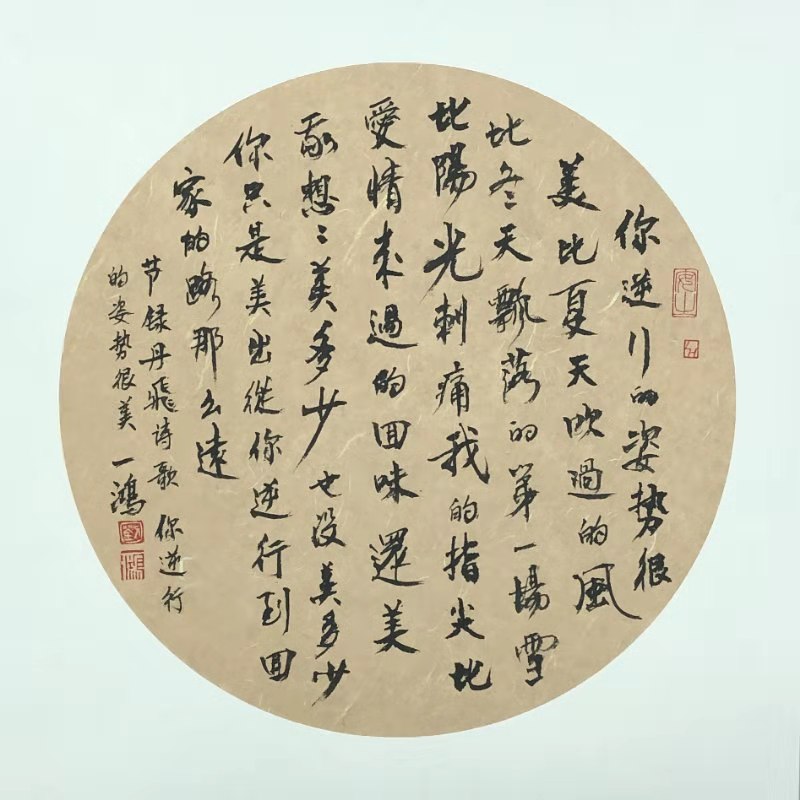 你逆行的姿势很
美比夏天吹過的风
比冬天飘落的第一場雪
比陽光刺痛我的指尖比
愛情来過的回味還美
我想想美多少也没美多少
你只是美出從你逆行到回
家的路那么遠
节録丹飛诗歌你逆行
的姿势很美一鴻